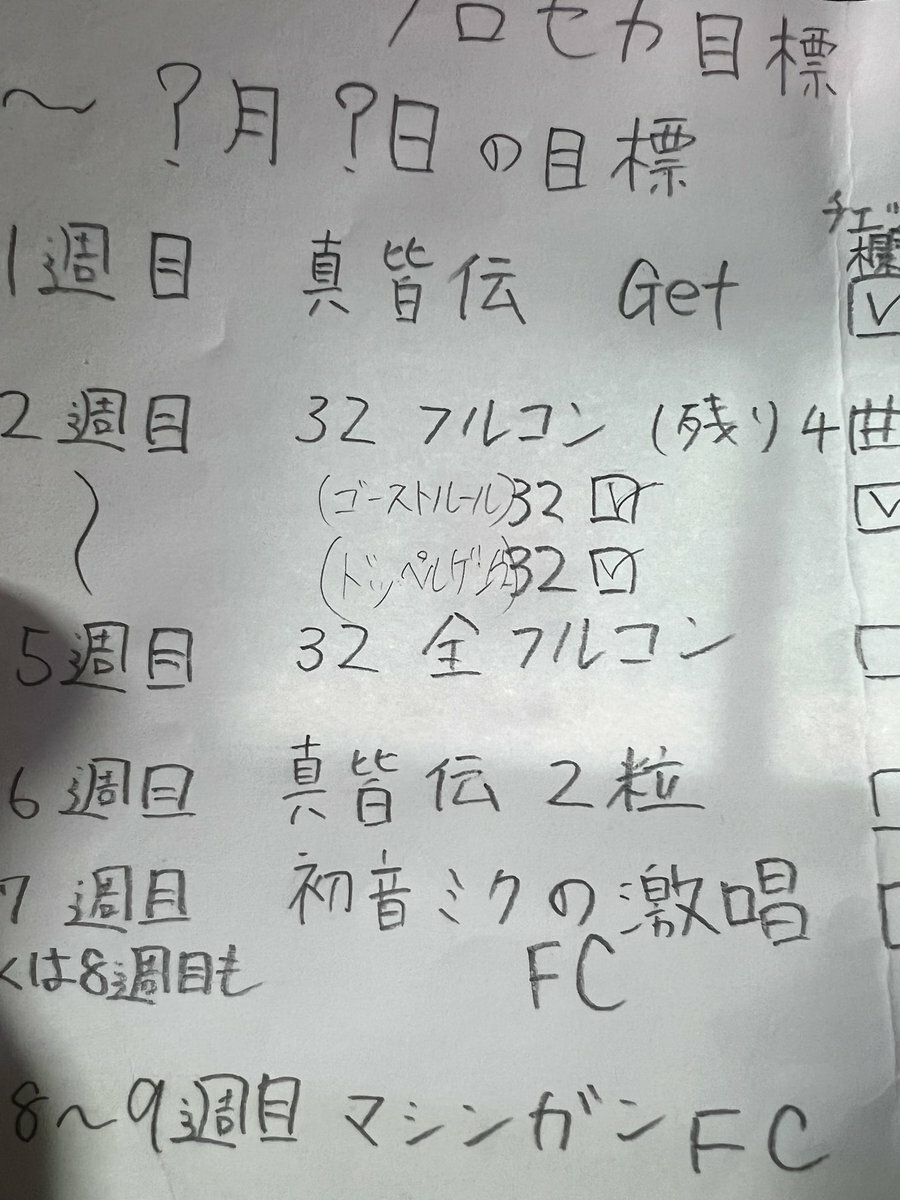 プロセカ目標
〜?月?日の目標
チェック欄
1週目 真皆伝 Get
2週目 32 フルコン (残り) 4
(ゴーストルール)32
(ドッペルゲンガー)32
5週目 32 全フルコン
6週目 真皆伝 2粒
7週目 初音ミクの激唱
くは8週目も FC
8〜9週目 マシンガン FC